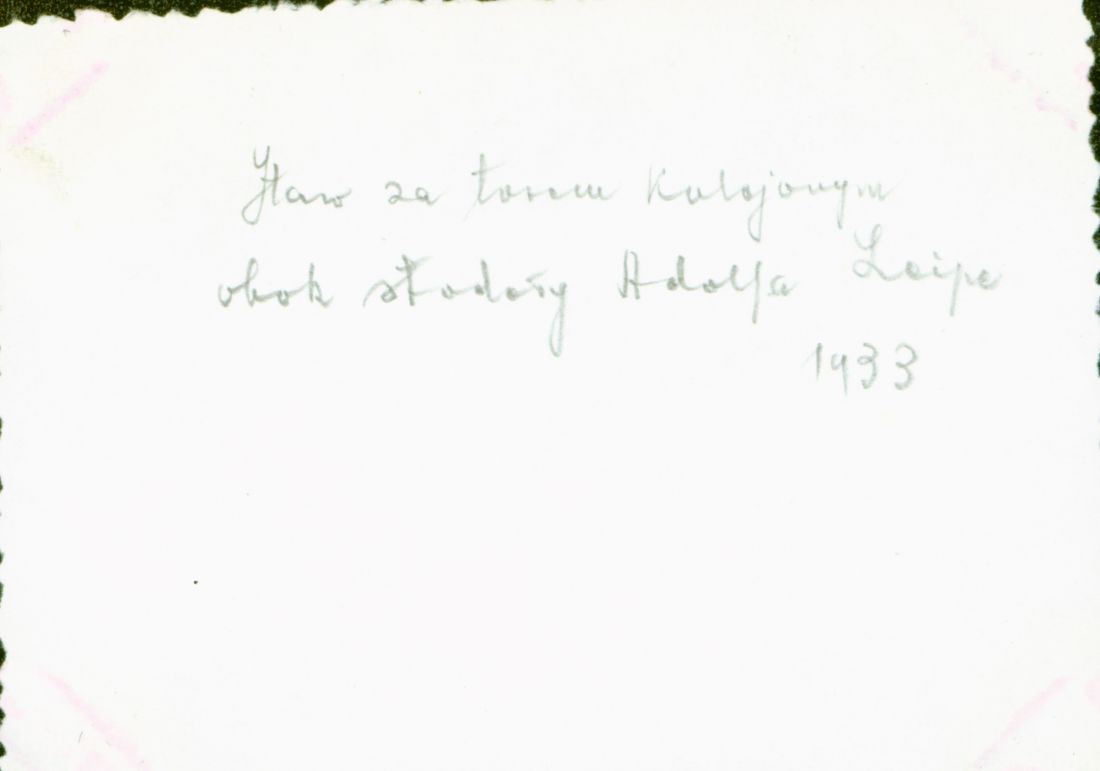 Staw za torem kolejowym
obok stodoły Adolfa Leipe
1933